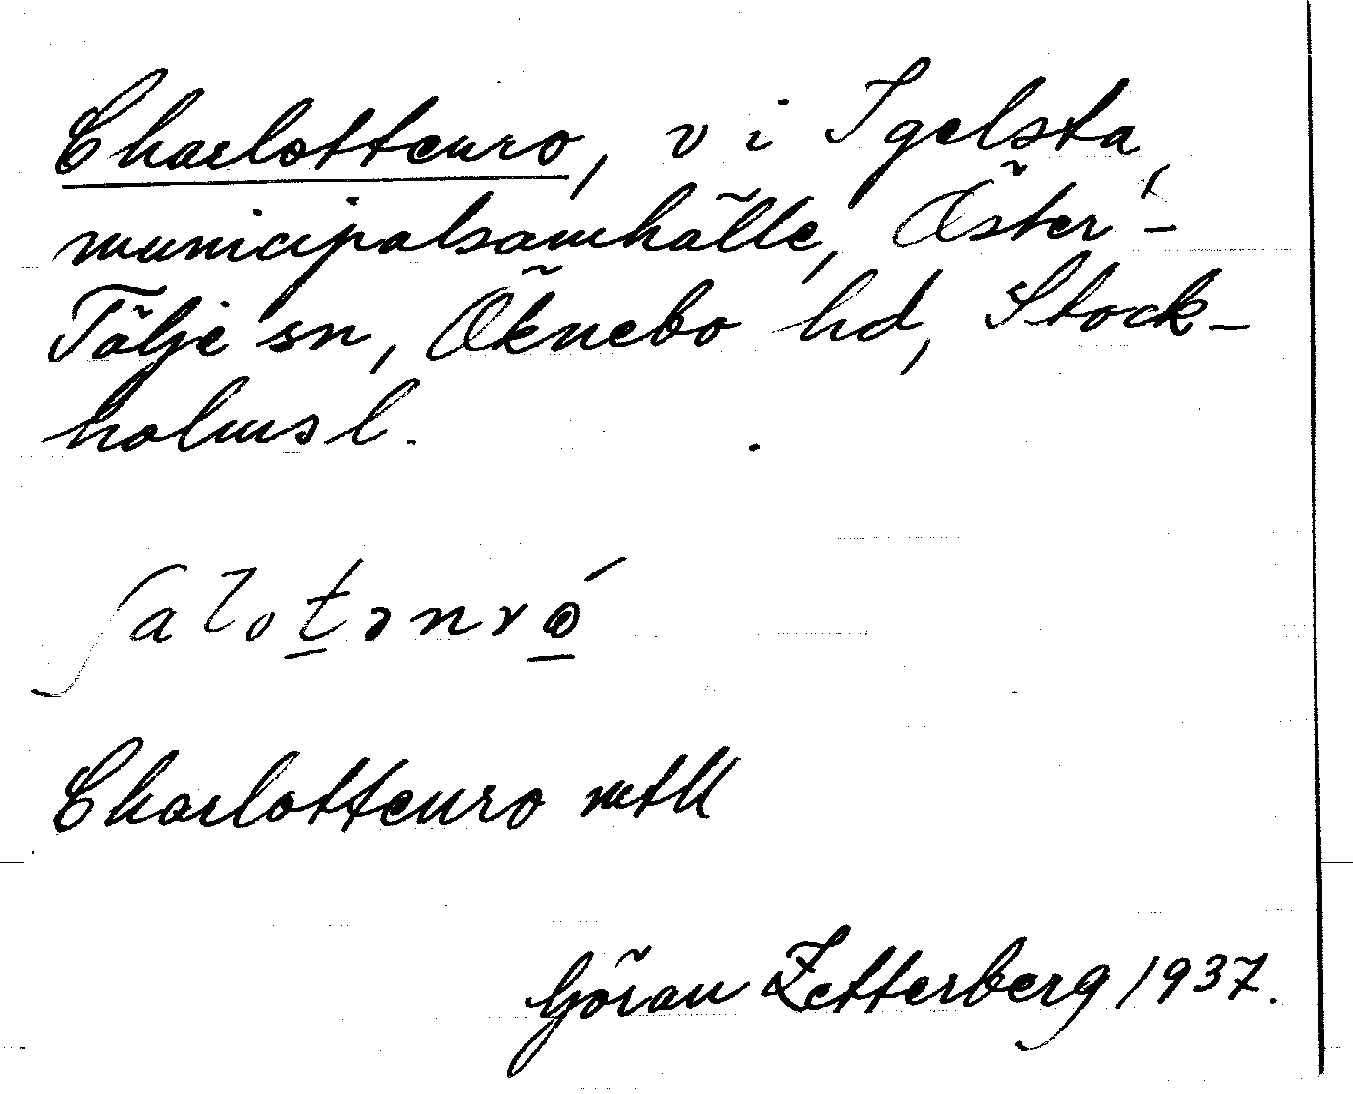 Charlottenro, v i Igelsta,
municipalsamhälle, Öster-
Tälje sn, Öknebo hd, Stock-
holms l.
ʃalot̠ənró̠
Charlottenro mtll
Göran Zetterberg 1937.